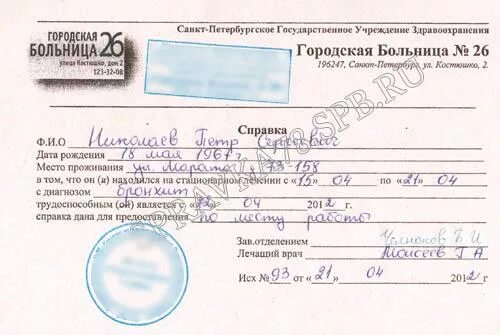 Санкт-Петербургское Государственное Учреждение Здравоохранения
ГОРОДСКАЯ
БОЛЬНИЦА 26
улица Костюшко, дом 2
123-32-08
Городская Больница № 26
196247, Санкт-Петербург, ул. Костюшко, 2.
Справка
Ф.И.О Николаев Петр Сергеевич
Дата рождения 18 мая 1967 г
Место проживания ул. Марата 73-158
в том, что он (а) находился на стационарном лечении с «15» 04 по «21» 04
с диагнозом бронхит
трудоспособным (ой) является с «22» 04 2012 г.
справка дана для предоставления по месту работы
Зав.отделением
Лечащий врач Моисеев Г.А
Исх № 93 от «21» 04 2012 г.
SPRAVKA78.SPB.RU